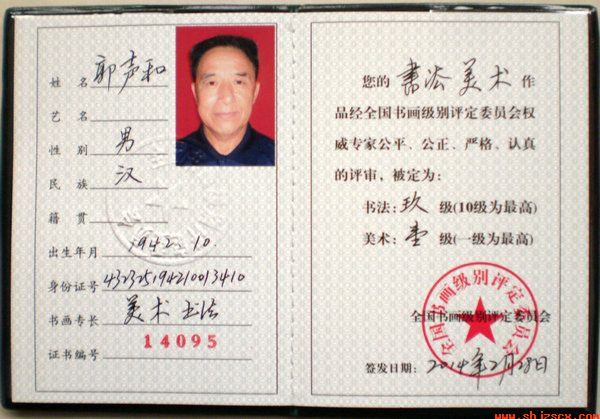 姓名 郭声和
艺名
性别 男
民族 汉
籍贯
出生年月 1942.10.
身份证号 432325194210013410
书画专长 美术 书法
证书编号 14095
您的 书法美术 作
品经全国书画级别评定委员会权
威专家公平、公正、严格、认真
的评审，被定为：
书法: 玖 级(10级为最高)
美术: 壹 级(一级为最高)
全国书画级别评定委员会
全国书画级别评定委员会
签发日期: 2014年2月28日
www.shjzscx.com